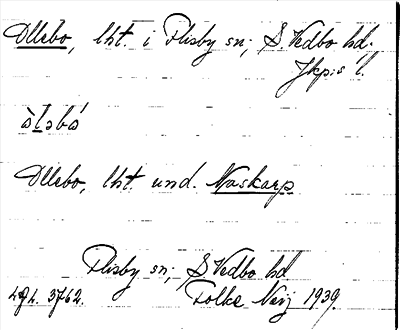 Ollebo, lht. i Flisby sn; S. Vedbo hd.
Jkp:s l.
Ollebo, lht. und. Naskarp
Flisby sn; S Vedbo hd
Folke 1939.